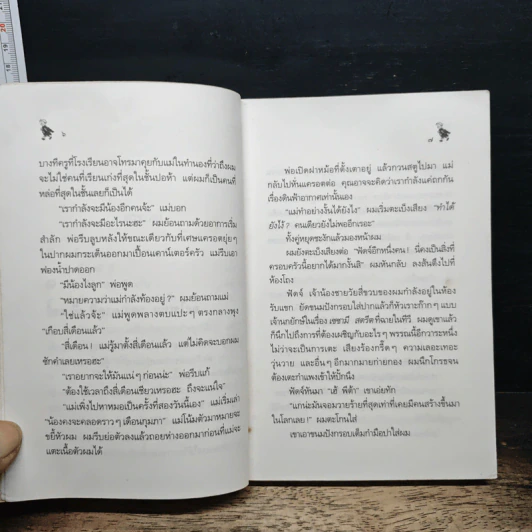 ๖
บางทีครูที่โรงเรียนอาจโทรมาคุยกับแม่ในทำนองที่ว่าถึงผม
จะไม่ใช่คนที่เรียนเก่งที่สุดในชั้นปอห้า แต่ผมก็เป็นคนที่
หล่อที่สุดในชั้นเลยก็เป็นได้
"เรากำลังจะมีน้องอีกคนจ้ะ" แม่บอก
"เรากำลังจะมีอะไรนะฮะ" ผมย้อนถามด้วยอาการเริ่ม
สำลัก พ่อรีบลูบหลังให้ขณะเดียวกับที่เศษแครอตยุ่ยๆ
ในปากผมกระเด็นออกมาเปื้อนเคาน์เตอร์ครัว แม่รีบเอา
ฟองน้ำปาดออก
"มีน้องไงลูก" พ่อพูด
"หมายความว่าแม่กำลังท้องอยู่?" ผมย้อนถามแม่
"ใช่แล้วจ้ะ" แม่พูดพลางตบแปะๆ ตรงกลางพุง
"เกือบสี่เดือนแล้ว"
"สี่เดือน! แม่รู้มาตั้งสี่เดือนแล้ว แต่ไม่คิดจะบอกผม
ซักคำเลยเหรอฮะ"
"เราอยากจะให้มันแน่ๆ ก่อนน่ะ" พ่อรีบแก้
"ต้องใช้เวลาถึงสี่เดือนเชียวเหรอฮะ ถึงจะแน่ใจ"
"แม่เพิ่งไปหาหมอเป็นครั้งที่สองวันนี้เอง" แม่เริ่มเล่า
"น้องคงจะคลอดราวๆ เดือนกุมภา" แม่โน้มตัวมาหมายจะ
ขยี้หัวผม ผมรีบย่อตัวลงแล้วถอยห่างออกมาก่อนที่แม่จะ
แตะเนื้อตัวผมได้
๗
พ่อเปิดฝาหม้อที่ตั้งเตาอยู่ แล้วกวนสตูไปมา แม่
กลับไปหั่นแครอตต่อ คุณอาจจะคิดว่าเรากำลังแค่ถกกัน
เรื่องดินฟ้าอากาศเท่านั้นเอง
"แม่ทำอย่างงั้นได้ยังไง" ผมเริ่มตะเบ็งเสียง "ทำได้
ยังไง? คนเดียวยังไม่พออีกเรอะ"
ทั้งคู่หยุดชะงักแล้วมองหน้าผม
ผมยังตะเบ็งเสียงต่อ "ฟัดจ์อีกหนึ่งคน! นี่คงเป็นสิ่งที่
ครอบครัวนี้อยากได้มากงั้นสิ" ผมหันกลับ ลงส้นตึงไปที่
ห้องโถง
ฟัดจ์ เจ้าน้องชายวัยสี่ขวบของผมกำลังอยู่ในห้อง
รับแขก ยัดขนมปังกรอบใส่ปากแล้วก็หัวเราะก๊ากๆ แบบ
เจ้านกยักษ์ในเรื่อง เซซามี สตรีตที่ฉายในทีวี ผมดูเขาแล้ว
ก็นึกไปถึงการที่ต้องเผชิญกับอะไรๆ พรรณนี้อีกวาระหนึ่ง
ไม่ว่าจะเป็นการเตะ เสียงร้องกรี๊ดๆ ความเลอะเทอะ
วุ่นวาย และอื่นๆ อีกมากมายก่ายกอง ผมนึกโกรธจน
ต้องเตะกำแพงเข้าให้ปึ้กนึง
ฟัดจ์หันมา "เฮ้ พีต้า" เขาเอ่ยทัก
"แกน่ะมันจอมวายร้ายที่สุดเท่าที่เคยมีคนสร้างขึ้นมา
ในโลกเลย!" ผมตะโกนใส่
เขาเอาขนมปังกรอบเต็มกำมือปาใส่ผม